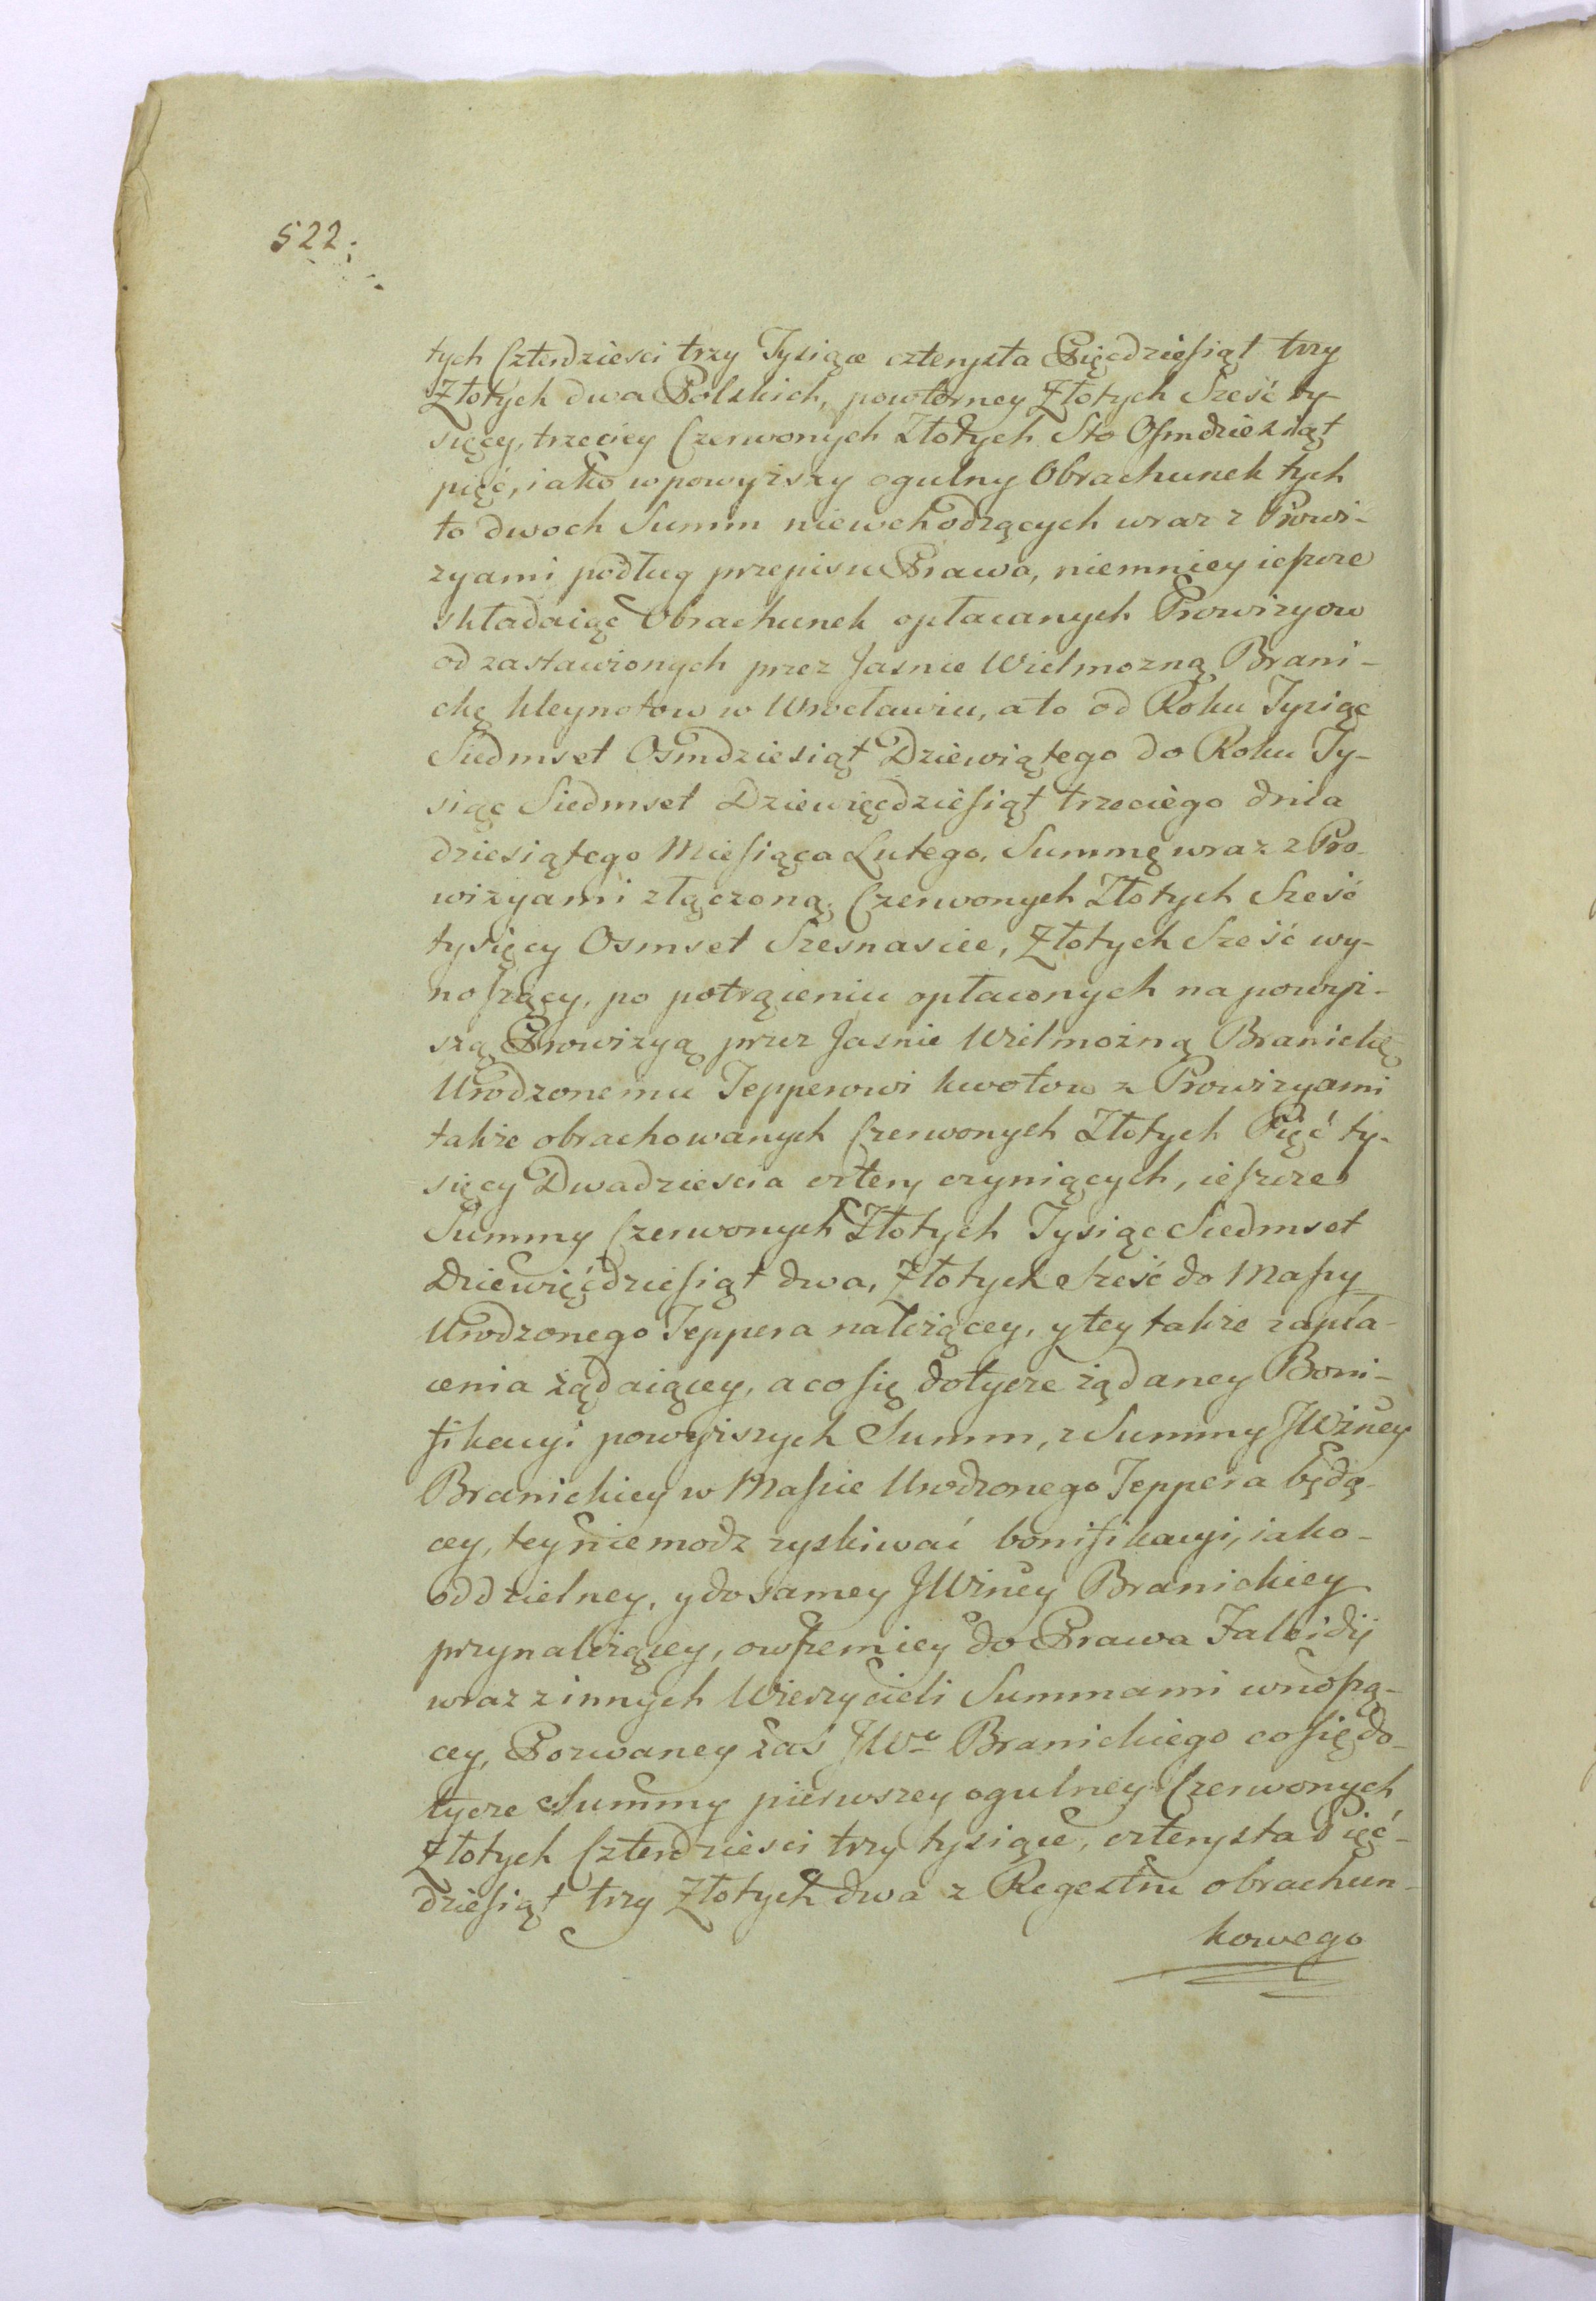 522.
tych Czterdziesci trzy Tysiące czterysta Pięcdziesiąt trzy
Złotych dwa Polskich, powtorney Złotych Sześć ty-
sięcy, trzeciey Czerwonych Złotych Sto Osmdziesiąt
pięć, iako w powyższy ogulny Obrachunek tych
to dwoch Summ niewchodzących wraz z Prowi-
zyami podług przepisu Prawa, niemniey ieszcze
składaiąc Obrachunek opłacanych Prowizyow
od zastawionych przez Jasnie Wielmozną Brani-
cką kleynotow w Wrocławiu, a to od Roku Tysiąc
Siedmset Osmdziesiąt Dziewiątego do Roku Ty-
siąc Siedmset Dziewięcdziesiąt trzeciego dnia
dziesiątego Miesiąca Lutego, Summę wraz z Pro-
wizyami złączoną Czerwonych Złotych Sześć
tysięcy Osmset Szesnascie, Złotych Sześć wy-
noszący, po potrąceniu opłaconych na powyż-
szą Prowizyą przez Jasnie Wielmożną Branicką
Urodzonemu Tepperowi kwotow z Prowizyami
także obrachowanych Czerwonych Złotych Pięć ty-
sięcy Dwadziescia cztery czyniących, ieszcze
Summy Czerwonych Złotych Tysiąc Siedmset
Dziewięćdziesiąt dwa, Złotych Sześć do Massy
Urodzonego Teppera należącey, y tey także zapła-
cenia żądaiącey, a co się dotycze żądaney Boni-
fikacyi powyższych Summ, z Summy JWżney
Branickiey w Massie Urodzonego Teppera będą-
cey, tey niemodz zyskiwać bonifikacyi, iako-
oddzielney, y do samey JWżney Branickiey
przynależącey, owszemiey do Prawa Falcidÿ
wraz z innych Wierzycieli Summami wnoszą-
cey, Pozwaney zaś JWo Branickiego co się do-
tycze Summy pierwszey ogulney Czerwonych
Złotych Czterdziesci trzy tysiące, czterysta Pięć-
dziesiąt trzy Złotych dwa z Regestru obrachun-
kowego